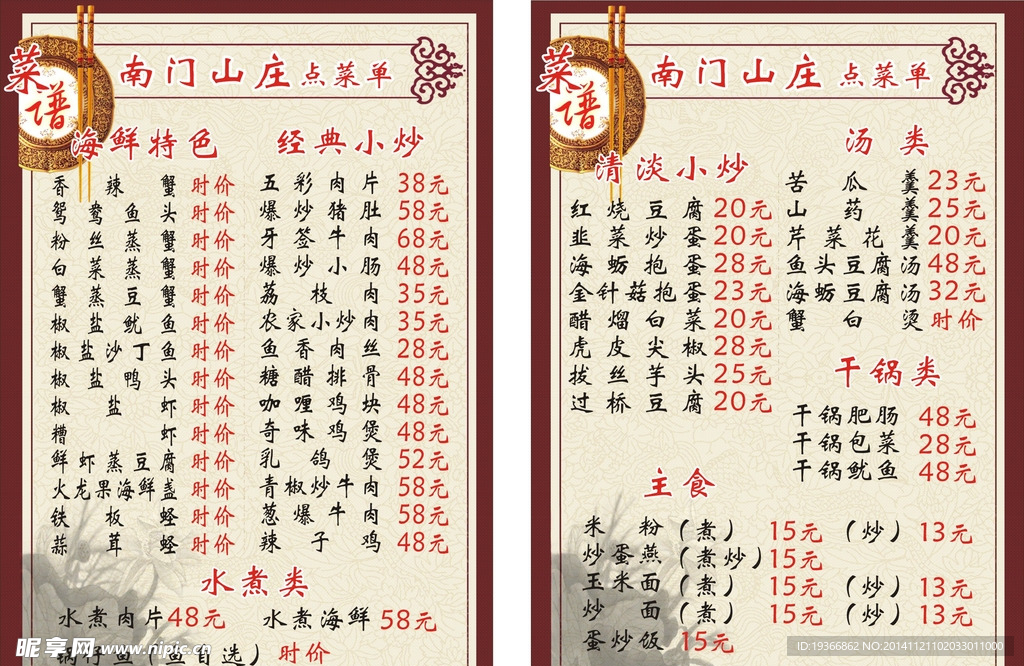 菜谱
南门山庄 点菜单
海鲜特色
香辣蟹 时价
鸳鸯鱼头 时价
粉丝蒸蟹 时价
白菜蒸蟹 时价
蟹蒸豆蟹 时价
椒盐鱿鱼 时价
椒盐沙丁鱼 时价
椒盐鸭头 时价
椒盐虾 时价
糟虾 时价
鲜虾蒸豆腐 时价
火龙果海鲜盏 时价
铁板蛏 时价
蒜茸蛏 时价
经典小炒
五彩肉片 38元
爆炒猪肚 58元
牙签牛肉 68元
爆炒小肠 48元
荔枝肉 35元
农家小炒肉 35元
鱼香肉丝 28元
糖醋排骨 48元
咖喱鸡块 48元
奇味鸡煲 48元
乳鸽煲 52元
青椒炒牛肉 58元
葱爆牛肉 58元
辣子鸡 48元
水煮类
水煮肉片 48元 水煮海鲜 58元
锅仔鱼(鱼自选) 时价
菜谱
南门山庄 点菜单
清淡小炒
红烧豆腐 20元
韭菜炒蛋 20元
海蛎抱蛋 28元
金针菇抱蛋 23元
醋熘白菜 20元
虎皮尖椒 28元
拔丝芋头 25元
过桥豆腐 20元
汤类
苦瓜羹 23元
山药羹 25元
芹菜花羹 20元
鱼头豆腐汤 48元
海蛎豆腐汤 32元
蟹白烫 时价
干锅类
干锅肥肠 48元
干锅包菜 28元
干锅鱿鱼 48元
主食
米粉(煮) 15元 (炒) 13元
炒蛋燕(煮炒) 15元
玉米面(煮) 15元 (炒) 13元
炒面(煮) 15元 (炒) 13元
蛋炒饭 15元
昵享网 www.nipic.cn
ID:19366862 NO:20141121102033011000